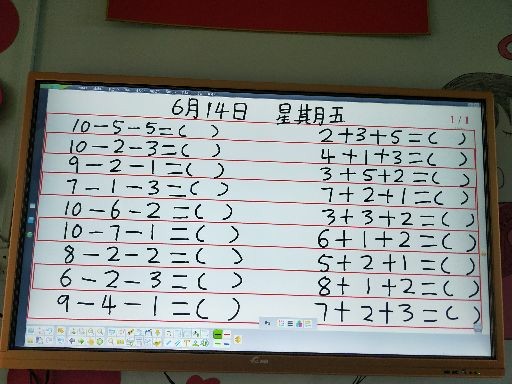 6月14日 星期五
1/1
10-5-5=( ) 2+3+5=( )
10-2-3=( ) 4+1+3=( )
9-2-1=( ) 3+5+2=( )
7-1-3=( ) 7+2+1=( )
10-6-2=( ) 3+3+2=( )
10-7-1=( ) 6+1+2=( )
8-2-2=( ) 5+2+1=( )
6-2-3=( ) 8+1+2=( )
9-4-1=( ) 7+2+3=( )